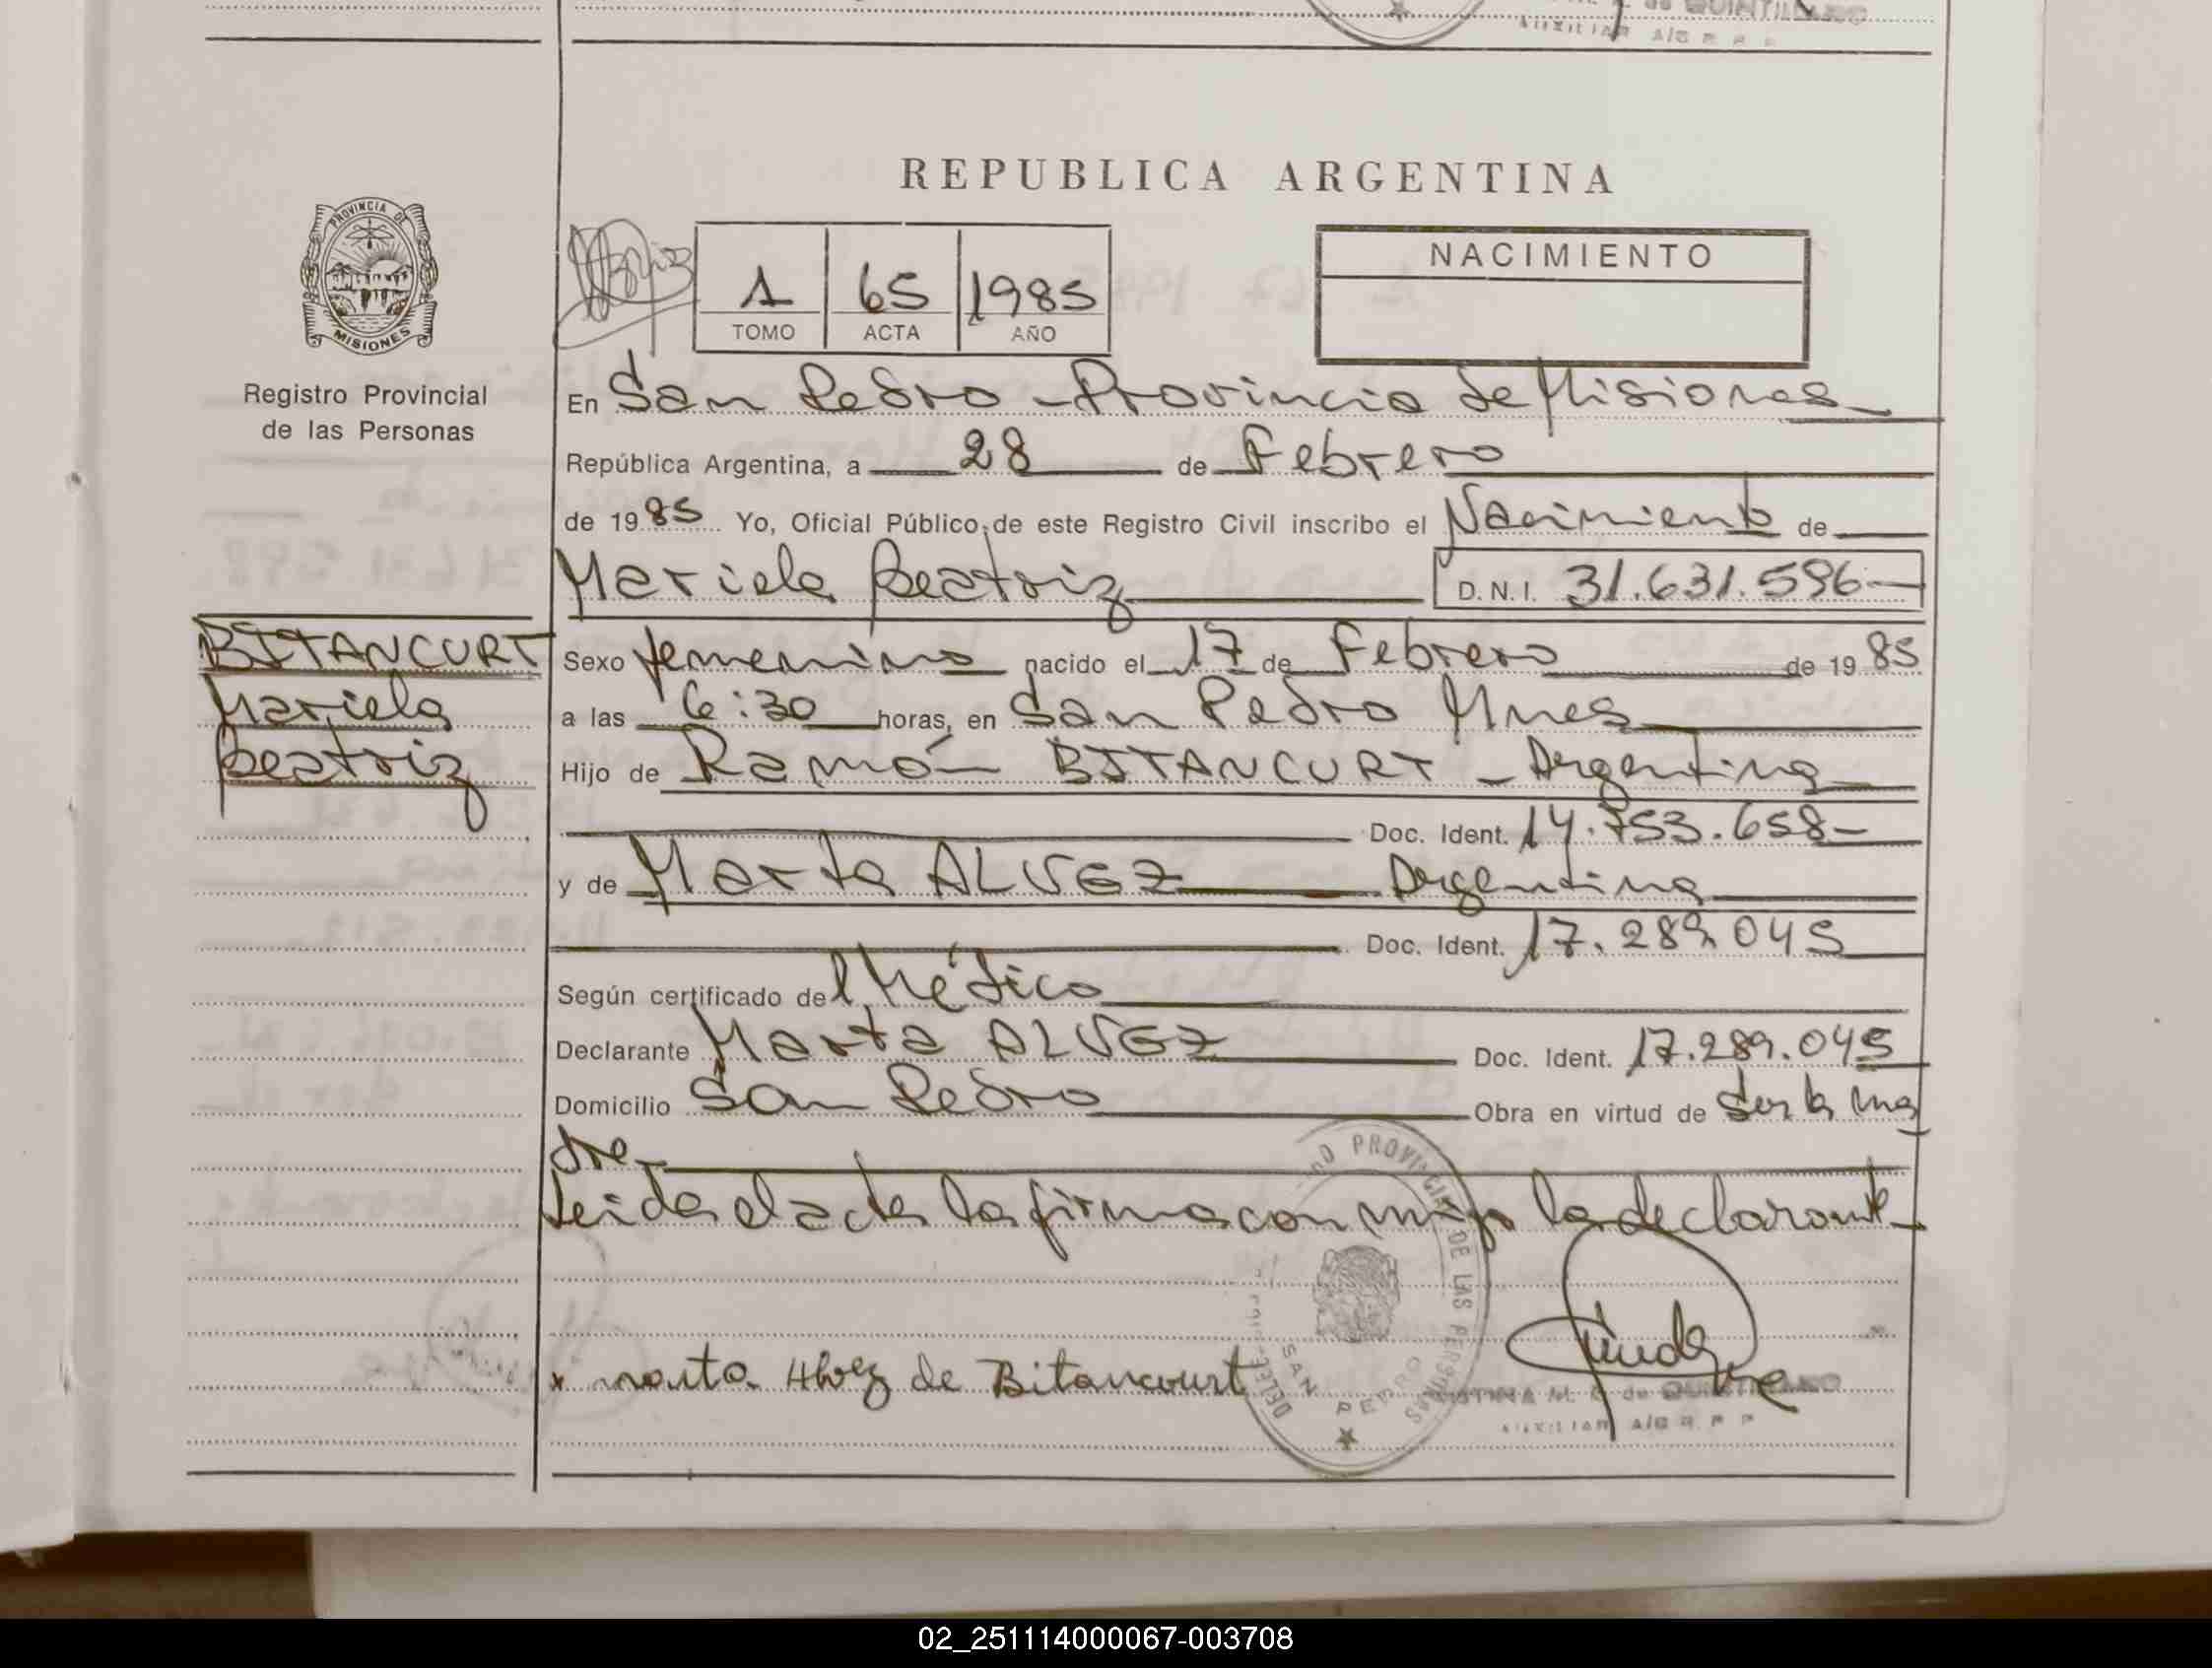 AUXILIAR A/C R. P. P.
REPUBLICA ARGENTINA
PROVINCIA DE
MISIONES
Registro Provincial
de las Personas
1 65 1985
TOMO ACTA AÑO
NACIMIENTO
En San Pedro - Provincia de Misiones
República Argentina, a 28 de Febrero
de 19 85 Yo, Oficial Público de este Registro Civil inscribo el Nacimiento de
Mariela Beatriz D.N.I. 31.631.596
BITANCURT
Mariela
Beatriz
Sexo femenino nacido el 17 de Febrero de 19 85
a las 6:30 horas, en San Pedro Mnes
Hijo de Ramón BITANCURT - Argentina
Doc. Ident. 14.753.658-
y de Marta ALVEZ Argentina
Doc. Ident. 17.289.045
Según certificado del Médico
Declarante Marta ALVEZ Doc. Ident. 17.289.045
Domicilio San Pedro Obra en virtud de Ser la ma
dre
Leida el acta la firma con migo la declarante
x marta Alvez de Bitancourt
PROVINCIAL DE LAS PERSONAS
SAN PEDRO
M. C. de QUINTILLANO
AUXILIAR A/C R. P. P.
02_251114000067-003708